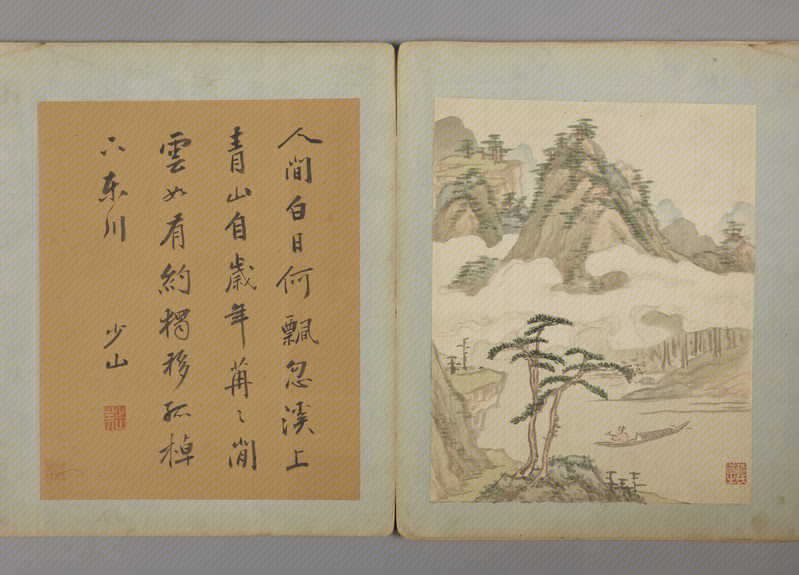 人間白日何飄忽溪上
青山自歲年冉冉閒
雲如有約獨移孤棹
下東川
少山